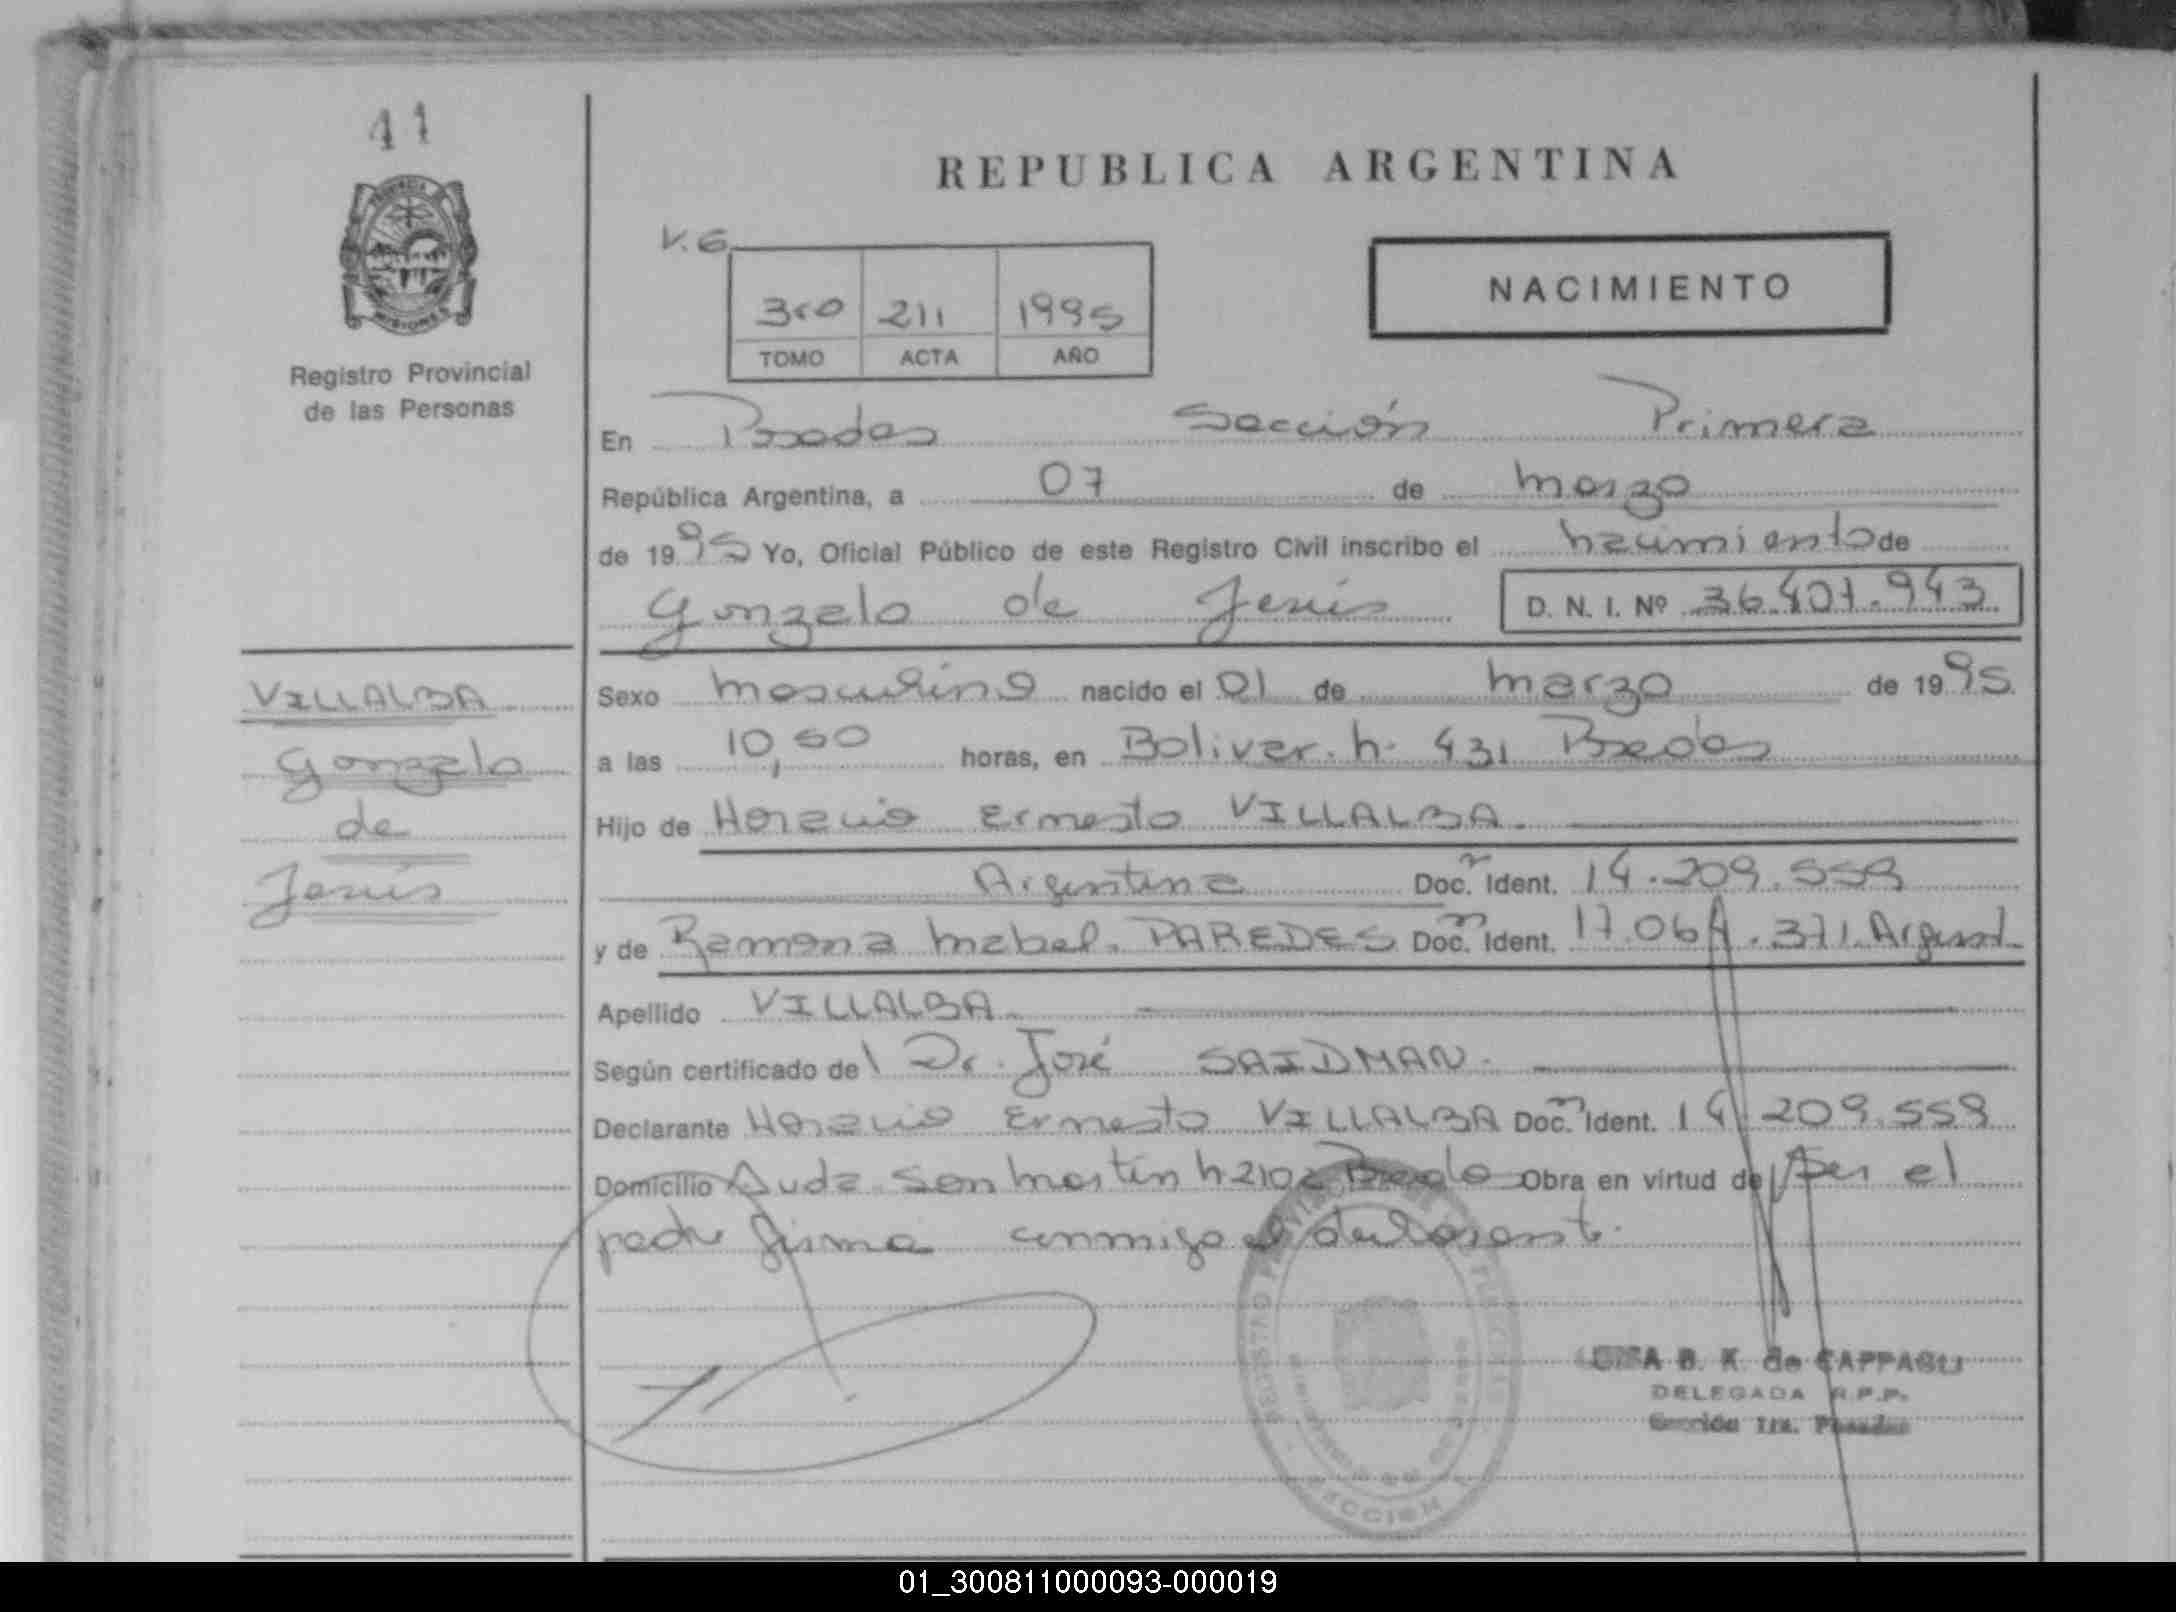 41
REPUBLICA ARGENTINA
V.G
NACIMIENTO
3ro 211 1995
TOMO ACTA AÑO
MISIONES
Registro Provincial
de las Personas
En Posadas Sección Primera
República Argentina, a 07 de marzo
de 1995 Yo, Oficial Público de este Registro Civil inscribo el nacimiento de
Gonzalo de Jesús D. N. I. Nº 36.407.943
VILLALBA
Gonzalo
de
Jesús
Sexo masculino nacido el 01 de marzo de 1995.
a las 10,50 horas, en Bolivar. n. 431 Posadas
Hijo de Horacio Ernesto VILLALBA.
Argentina Doc. Ident. 14.209.559
y de Ramona Mabel. PAREDES Doc. Ident. 17.064.371. Argent.
Apellido VILLALBA.
Según certificado del Dr. José SAIDMAN.
Declarante Horacio Ernesto VILLALBA Doc. Ident. 14.209.559
Domicilio Avda San Martín n 2102 Posadas Obra en virtud de ser el
padre firma conmigo el declarante.
B. K. de CAPPAGLI
DELEGADA R.P.P.
Sección 1ra. Posadas
REGISTRO PROVINCIAL DE LAS PERSONAS
SECCION 1
01_300811000093-000019